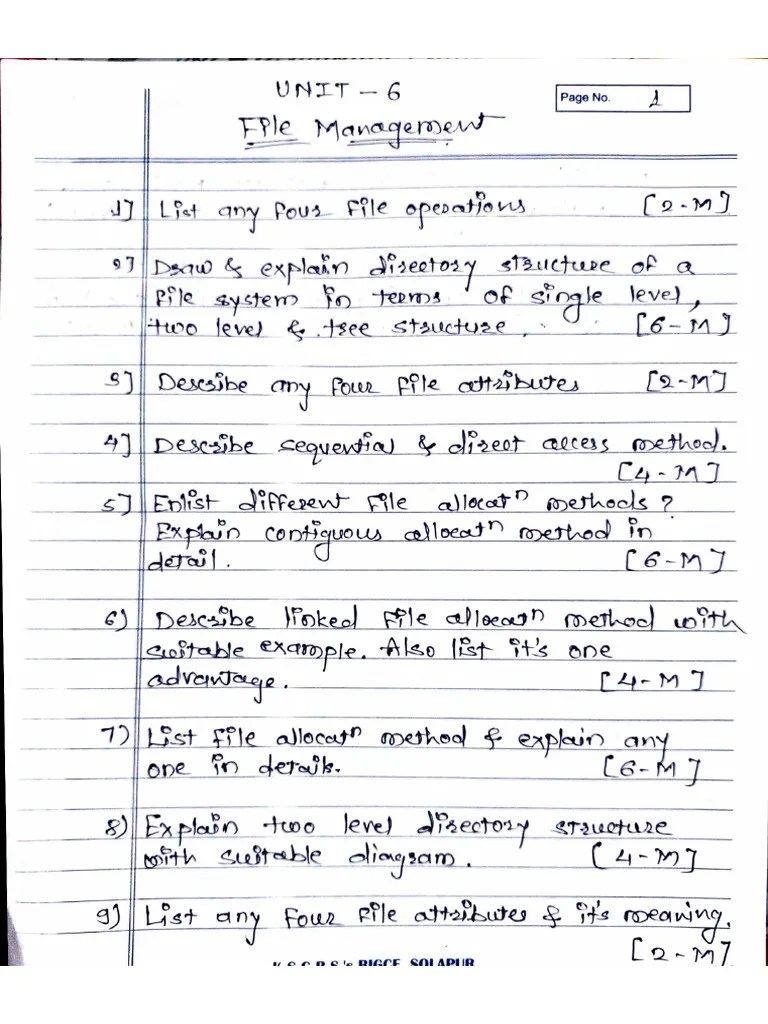 UNIT - 6
Page No. 1
File Management
1] List any four file operations [2-M]
2] Draw & explain directory structure of a
file system in terms of single level,
two level & tree structure. [6-M]
3] Describe any four file attributes [2-M]
4] Describe sequential & direct access method.
[4-M]
5] Enlist different file allocatⁿ methods?
Explain contiguous allocatⁿ method in
detail. [6-M]
6) Describe linked file allocatⁿ method with
suitable example. Also list it's one
advantage. [4-M]
7) List file allocatⁿ method & explain any
one in details. [6-M]
8) Explain two level directory structure
with suitable diagram. [4-M]
9) List any four file attributes & it's meaning.
[2-M]
SOLAPUR